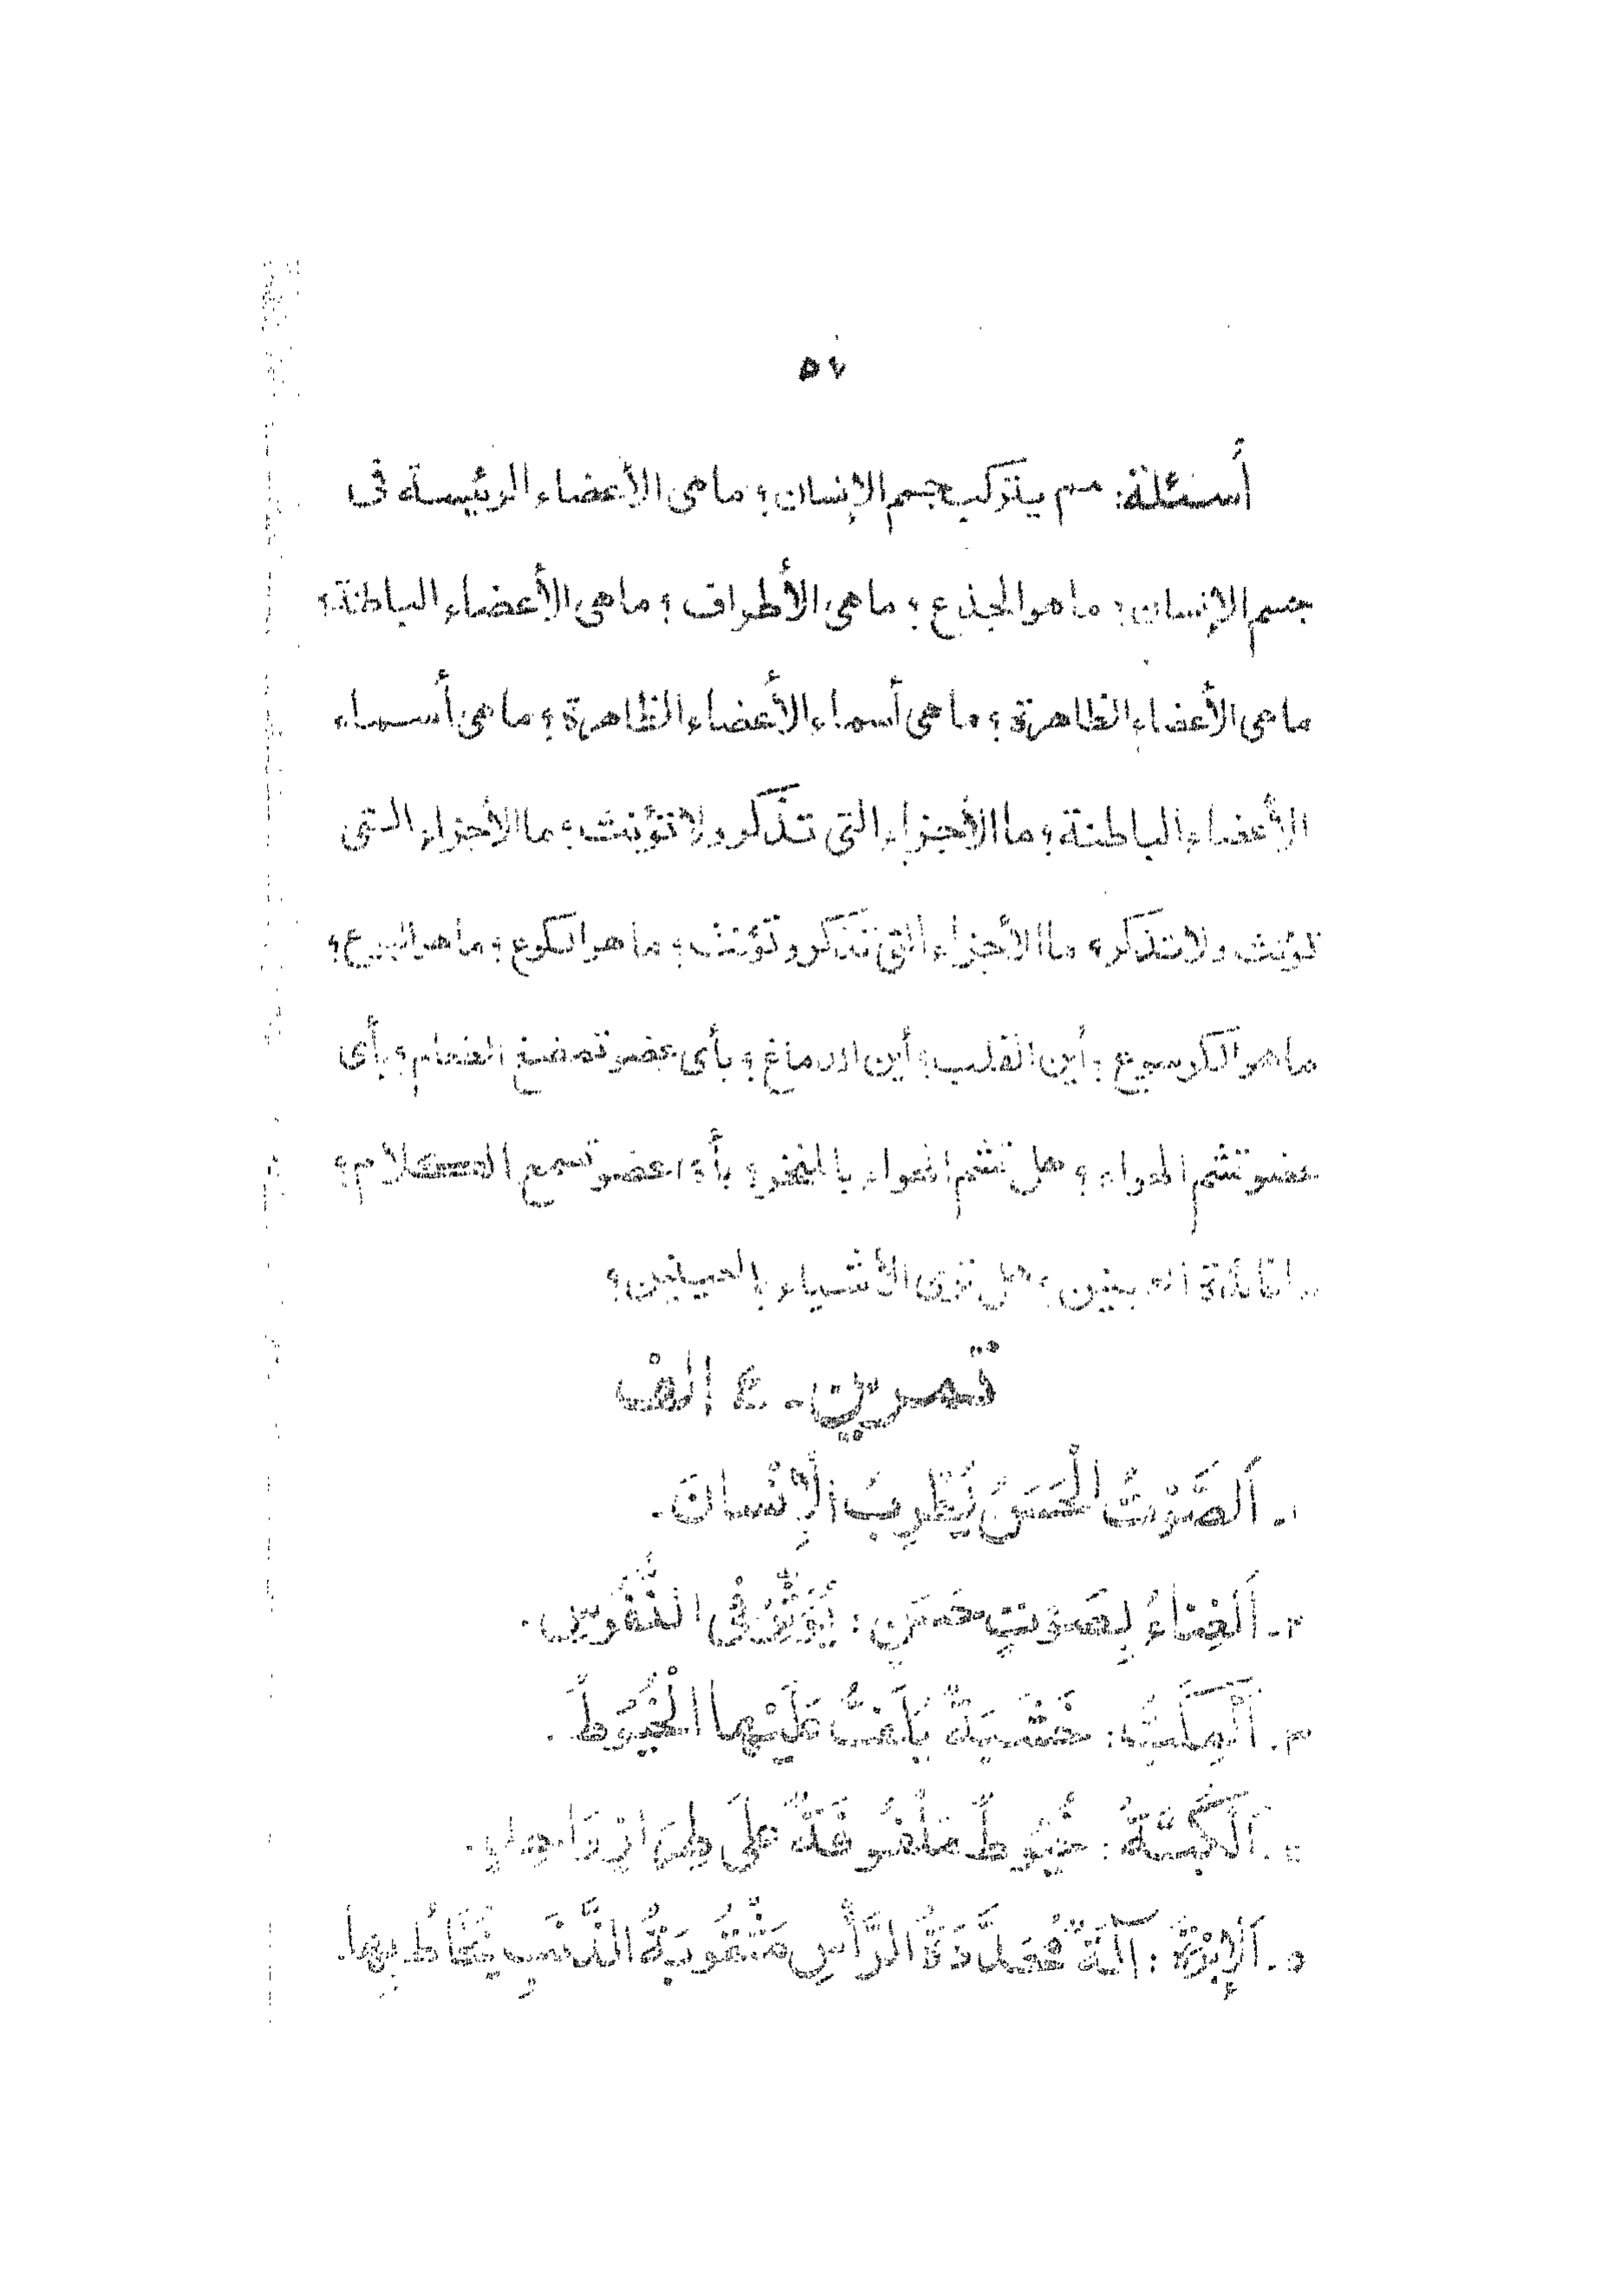 ٥٧
أسئلة: مم يتركب جسم الإنسان؟ ما هى الأعضاء الرئيسة فى
جسم الإنسان؟ ما هو الجذع؟ ما هى الأطراف؟ ما هى الأعضاء الباطنة؟
ما هى الأعضاء الظاهرة؟ ما هى أسماء الأعضاء الظاهرة؟ ما هى أسماء
الأعضاء الباطنة؟ ما الأجزاء التى تذكر ولا تؤنث؟ ما الأجزاء التى
تؤنث ولا تذكر؟ ما الأجزاء التى تذكر وتؤنث؟ ما هو الكوع؟ ما هو
ما هو الكرسوع؟ أين القلب؟ أين الدماغ؟ بأى عضو تمضغ الطعام؟ بأى
عضو تشم الهواء؟ هل تشم الهواء بالمنخر؟ بأى عضو تسمع الكلام؟
هل ترى الأشياء بالعينين؟
تمرين - ٤ الف
١- اَلصَّوْتُ الْحَسَنُ يُطْرِبُ الْإِنْسَانَ.
٢- اَلْغِنَاءُ بِصَوْتٍ حَسَنٍ: يُؤَثِّرُ فِى النُّفُوْسِ.
٣- خَشَبَةٌ يُلَفُّ عَلَيْهَا الْخُيُوْطُ.
٤- اَلْكُبَّةُ: خُيُوْطٌ مَلْفُوْفَةٌ عَلَى
٥- اَلْإِبْرَةُ: آلَةٌ مُحَدَّدَةُ الرَّأْسِ مَثْقُوْبَةُ الذَّنَبِ يُخَاطُ بِهَا.